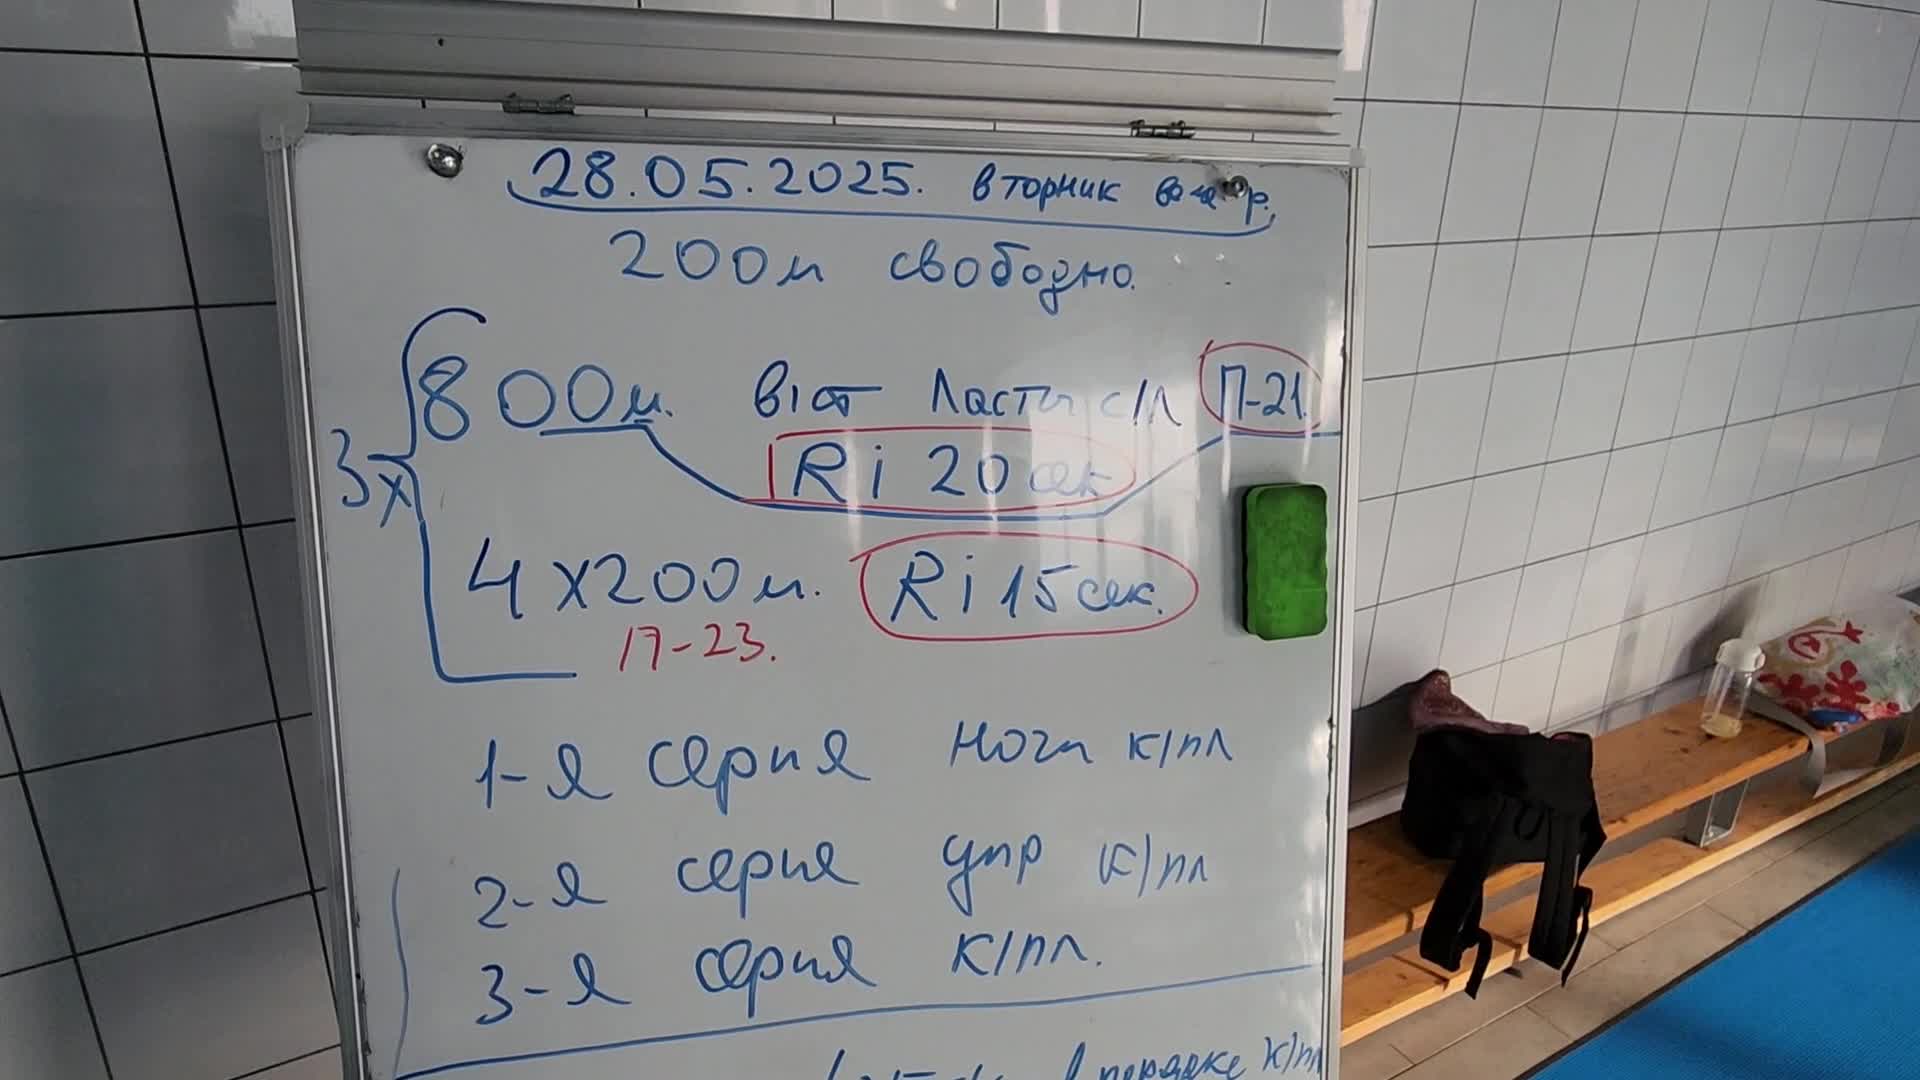 28.05.2025. вторник вечер.
200м свободно.
800м. в/ст Ласты с/л П-21.
Ri 20 сек
3х
4х200м. Ri 15 сек.
17-23.
1-я серия ноги к/пл
2-я серия упр к/пл
3-я серия к/пл.
в порядке к/пл